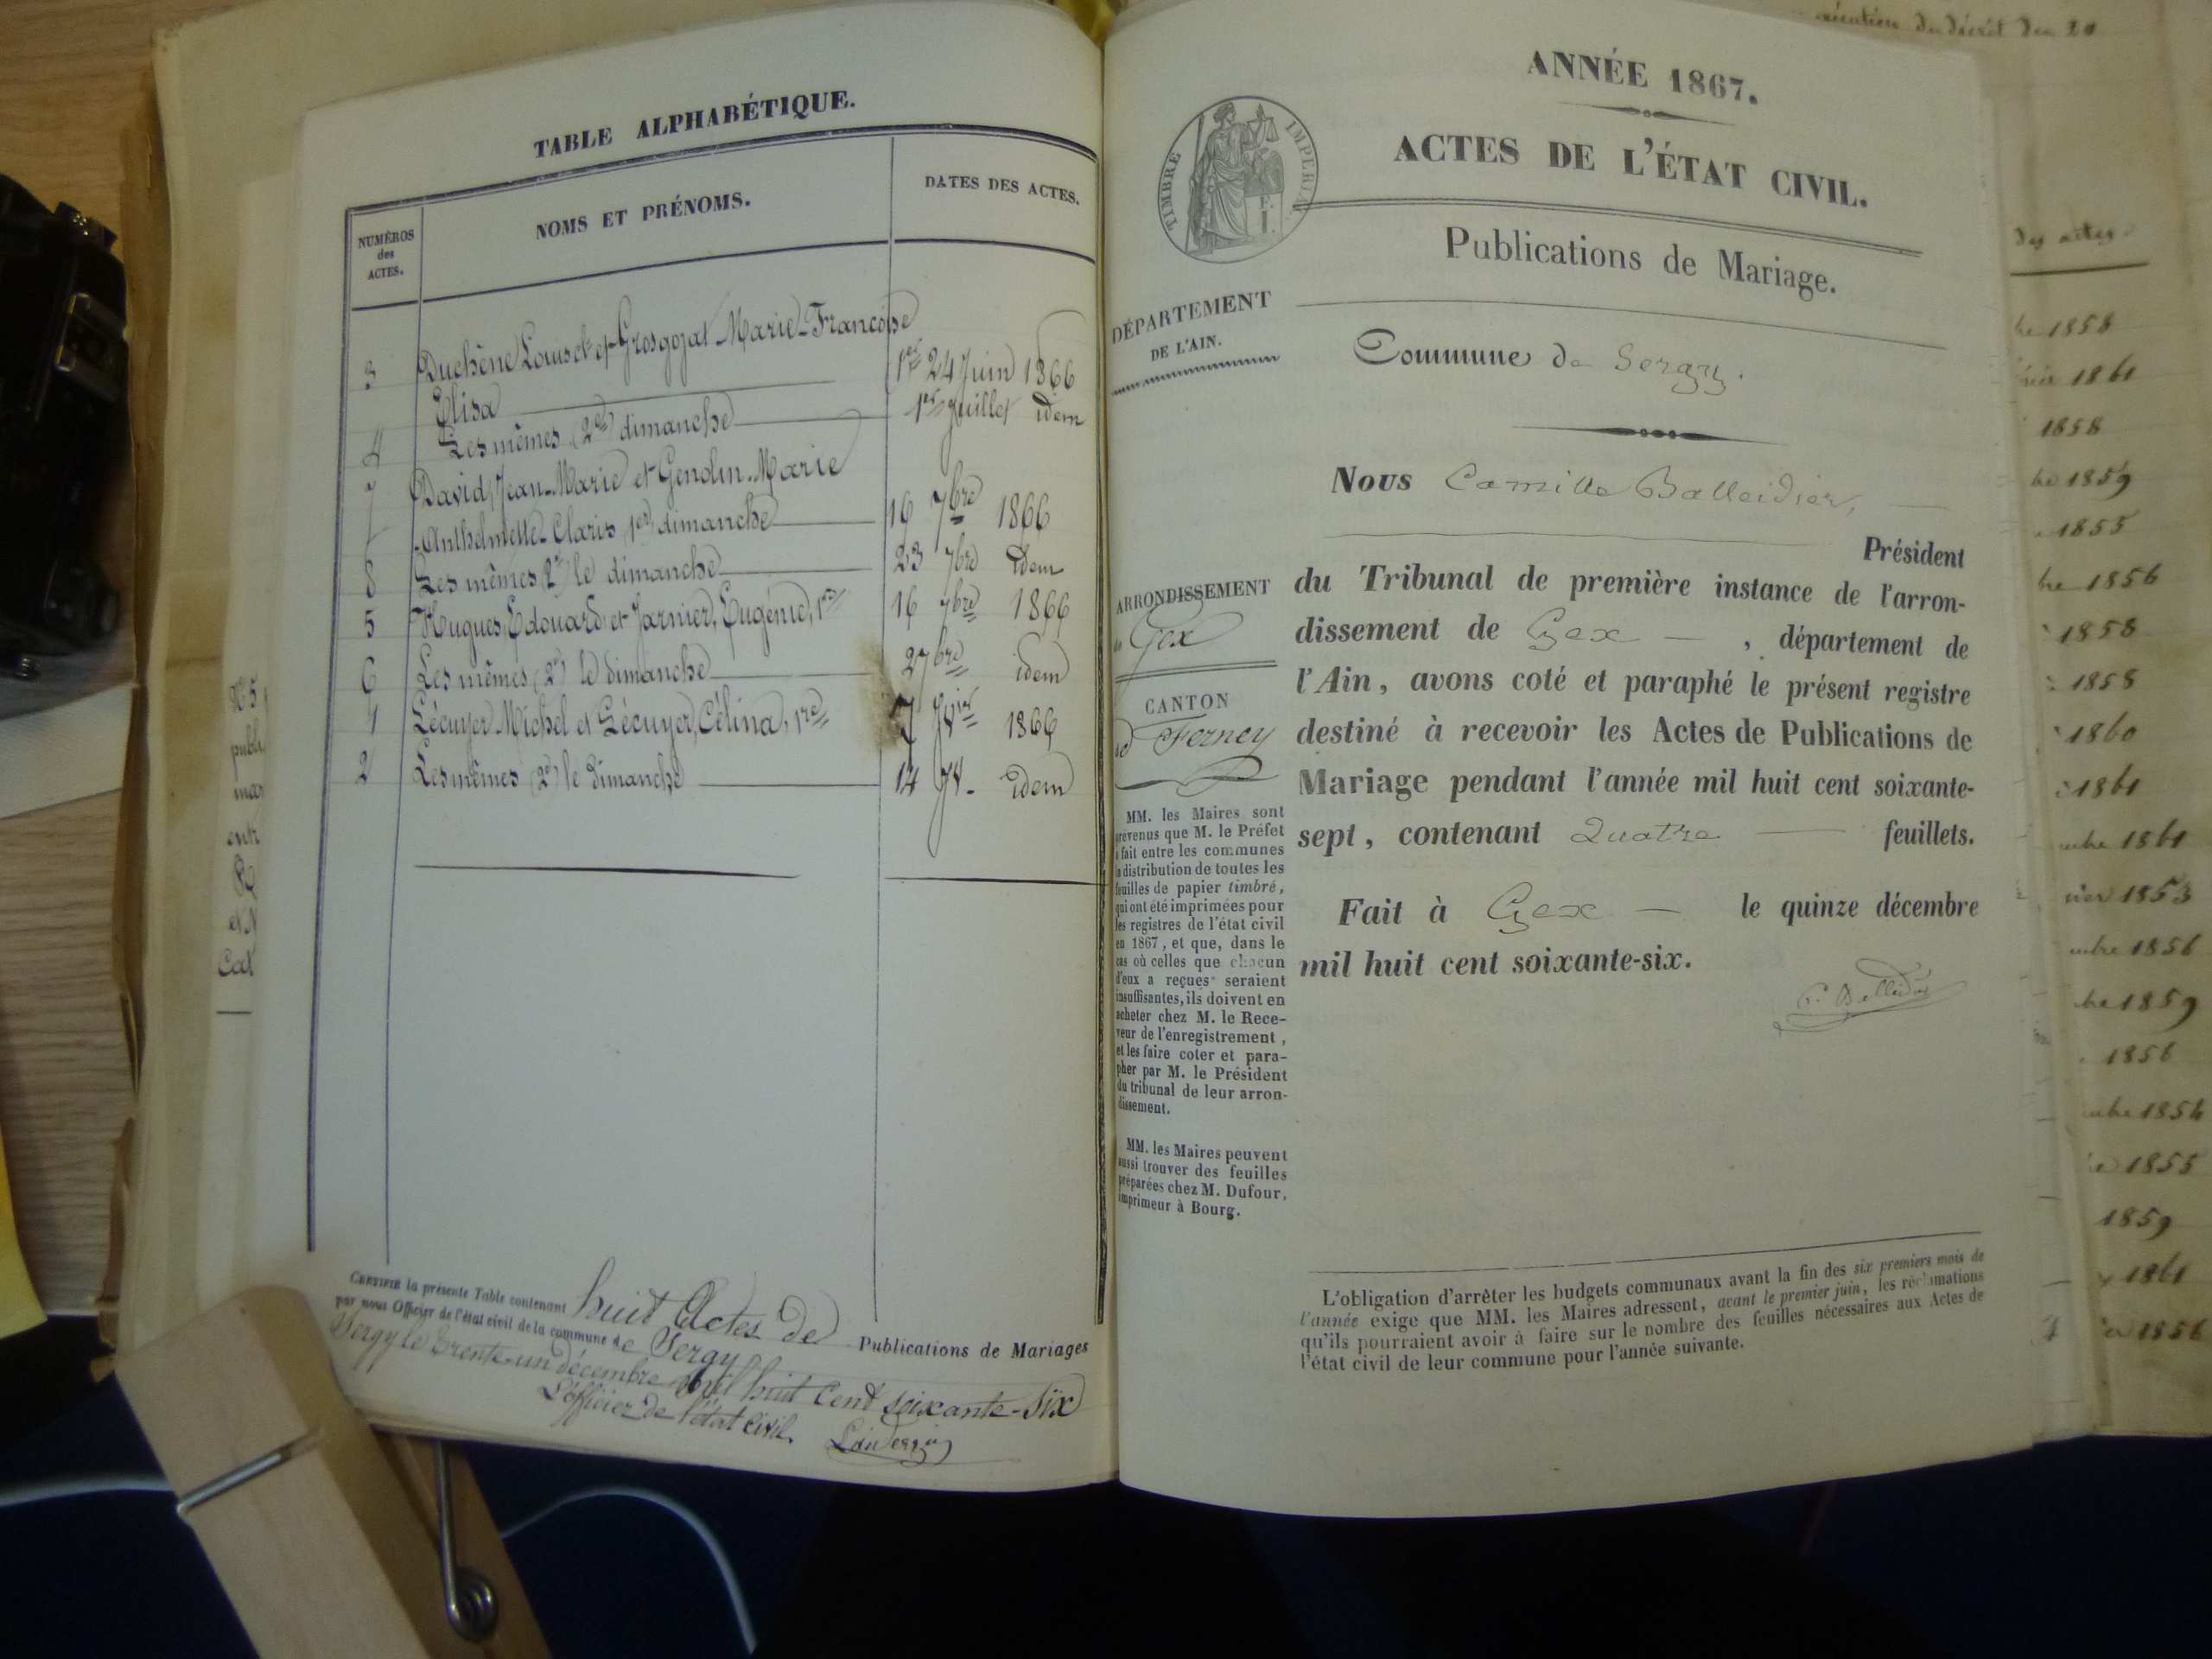 TABLE ALPHABÉTIQUE.
NUMÉROS
des
ACTES.
NOMS ET PRÉNOMS.
DATES DES ACTES.
3 Duchêne Louis et Grosgojat Marie-Françoise
Elisa 1er 24 Juin 1866
4 Les mêmes (2e) dimanche 1er Juillet idem
7 David, Jean-Marie et Gendin Marie
Anthelmette Claris 1er dimanche 16 7bre 1866
8 Les mêmes (2e) le dimanche 23 7bre idem
5 Hugues, Edouard et Jarnier, Eugénie, 1re 16 7bre 1866
6 Les mêmes (2e) le dimanche 2 7bre idem
1 Lécuyer Michel et Lécuyer, Célina, 1re 7 Jvier 1866
2 Les mêmes (2e) le dimanche 14 Jv. idem
CERTIFIÉ la présente Table contenant huit Actes de Publications de Mariages
par nous Officier de l'état civil de la commune de Sergy
Sergy le trente-un décembre mil huit cent soixante-six
L'officier de l'état civil.
ANNÉE 1867.
TIMBRE IMPERIAL
ACTES DE L'ÉTAT CIVIL.
Publications de Mariage.
DÉPARTEMENT
DE L'AIN.
Commune de Sergy.
Nous Camille Balleidier,
Président
du Tribunal de première instance de l'arron-
dissement de Gex, département de
l'Ain, avons coté et paraphé le présent registre
destiné à recevoir les Actes de Publications de
Mariage pendant l'année mil huit cent soixante-
sept, contenant Quatre feuillets.
Fait à Gex le quinze décembre
mil huit cent soixante-six.
C. Balleidier
ARRONDISSEMENT
Gex
CANTON
Ferney
MM. les Maires sont
prévenus que M. le Préfet
a fait entre les communes
la distribution de toutes les
feuilles de papier timbré,
qui ont été imprimées pour
les registres de l'état civil
en 1867, et que, dans le
cas où celles que chacun
d'eux a reçues seraient
insuffisantes, ils doivent en
acheter chez M. le Rece-
veur de l'enregistrement,
et les faire coter et para-
pher par M. le Président
du tribunal de leur arron-
dissement.
MM. les Maires peuvent
aussi trouver des feuilles
préparées chez M. Dufour,
imprimeur à Bourg.
L'obligation d'arrêter les budgets communaux avant la fin des six premiers mois de
l'année exige que MM. les Maires adressent, avant le premier juin, les réclamations
qu'ils pourraient avoir à faire sur le nombre des feuilles nécessaires aux Actes de
l'état civil de leur commune pour l'année suivante.
du décret du 20
des actes
1858
1861
1858
1859
1855
1856
1858
1858
1860
1861
1861
1853
1856
1859
1856
1854
1855
1859
1861
1856